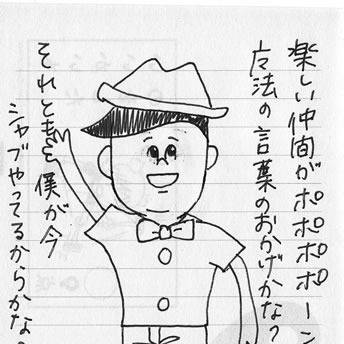 楽しい仲間がポポポポーン
广法の言葉のおかげかな?
それともを僕が今
シャブやってるからかな?